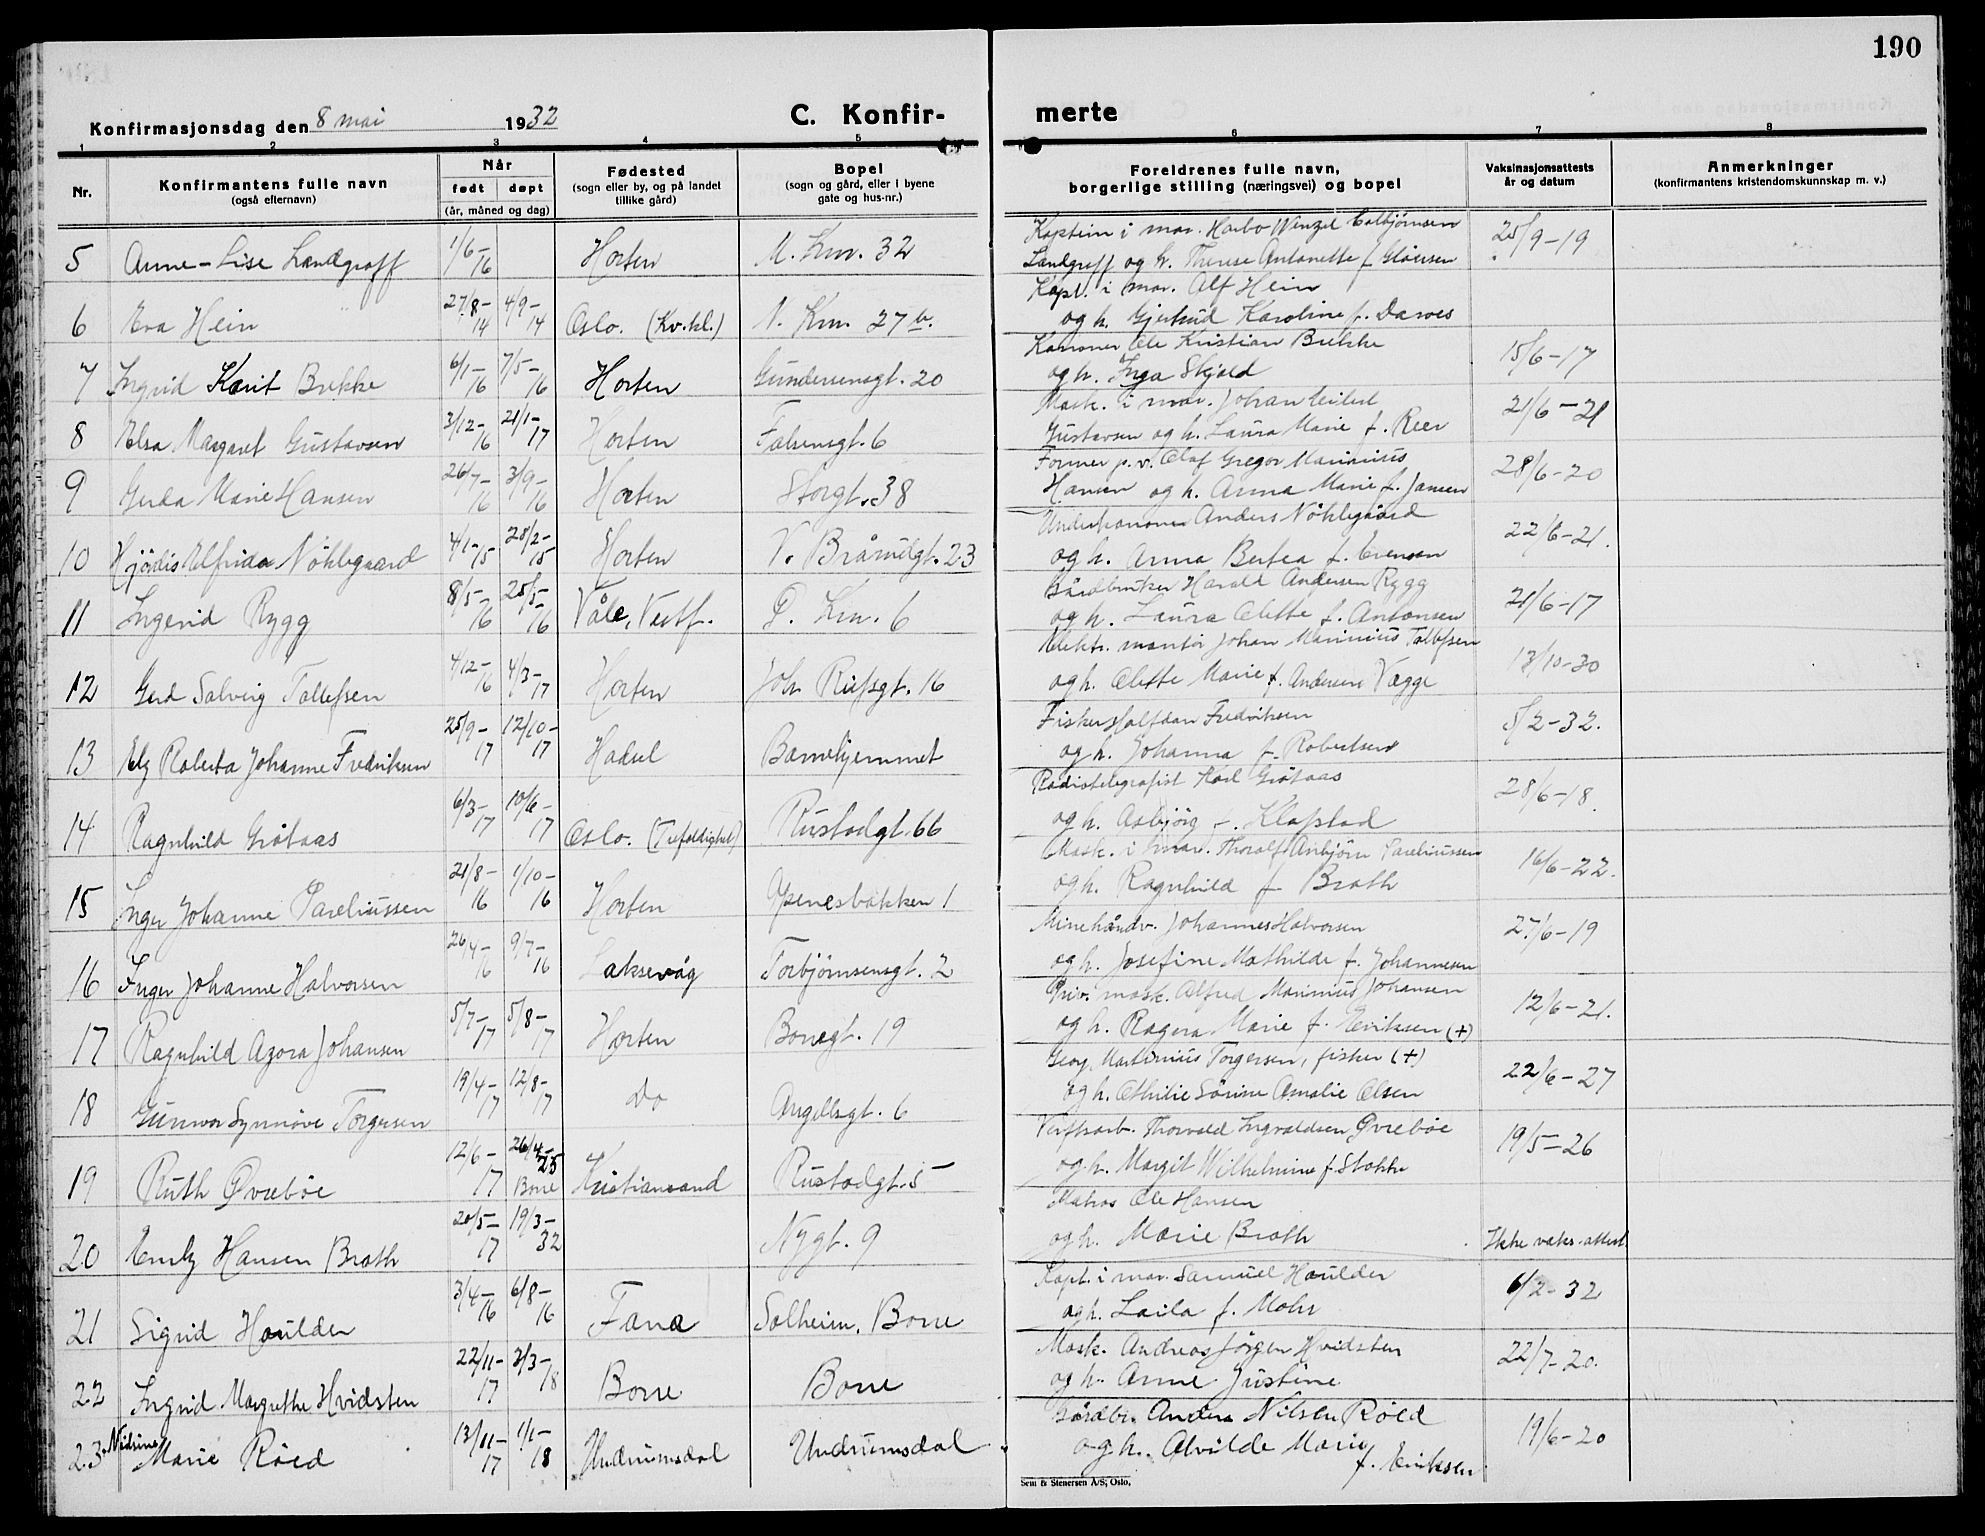 190
Konfirmasjonsdag den 8 mai 1932
C. Konfir-
merte
1 2 3 4 5 6 7 8
Nr.
Konfirmantens fulle navn
(også efternavn)
Når
født døpt
(år, måned og dag)
Fødested
(sogn eller by, og på landet
tillike gård)
Bopel
(sogn og gård, eller i byene
gate og hus-nr.)
Foreldrenes fulle navn,
borgerlige stilling (næringsvei) og bopel
Vaksinasjonsattests
år og datum
Anmerkninger
(konfirmantens kristendomskunnskap m. v.)
5 Anne-Lise Landgraff 1/6-16 Horten 32
Kaptein i mar. Harbo Wenzel Colbjørnsen
Landgraff og h. Therese Antonette f. 25/9-19
6 Eva Hein 27/8-14 4/9-14 Oslo. (Kv.kl.) 27 b.
Kapt. i mar. Alf Hein
og h. Gjertrud Karoline f. Danves
7 Ingrid Karit Brekke 6/1-16 7/5-16 Horten Gundersensgt. 20
Kanoner Ole Kristian Brekke
og h. Inga Skjold 15/6-17
8 Elsa Margaret Gustavsen 3/12-16 21/1-17 Horten Falsensgt. 6
Mask. i mar. Johan
Gustavsen og h. Laura Marie f. Reer 21/6-21
9 Gerda Marie Hansen 26/7-16 3/9-16 Horten Storgt. 38
Former p.v. Olaf Gregor Marinius
Hansen og h. Anna Marie f. Jansen 28/6-20
10 Hjördis Elfrida Nöklegaard 4/1-15 28/2-15 Horten V. Bråradgt. 23
Underkanoner Anders Nöklegaard
og h. Anna Bertea f. Evensen 22/6-21.
11 Ingerid Rygg 8/5-16 25/5-16 Våle, Vestf. 6
Gårdbruker Harald Andersen Rygg
og h. Laura Olette f. Antonsen 21/6-17
12 Gerd Solveig Tollefsen 4/12-16 4/3-17 Horten Joh. Rufsgt. 16
Elektr. montør Johan Marinius Tollefsen
og h. Olette Marie f. Andersen Vægge 13/10-30
13 Ely Roberta Johanne Fredriksen 25/9-17 12/10-17 Hadsel Barnehjemmet
Fisker Halfdan Fredriksen
og h. Johanna f. Robertsen 5/2-32.
14 Ragnhild Gråtaas 6/3-17 10/6-17 Oslo. (Trefoldighet) Rustadgt. 66
Radiotelegrafist Karl Gråtaas
og h. Asbjörg f. Klafstad 28/6-18.
15 Inger Johanne Pareliussen 21/8-16 1/10-16 Horten Apenesbakken 1
Mask. i mar. Thoralf Anbjørn Pareliussen
og h. Ragnhild f. Brath 16/6-22.
16 Inger Johanne Halvorsen 26/4-16 9/7-16 Laksevåg Torbjørnsensgt. 2
Minehåndv. Johannes Halvorsen
og h. Josefine Mathilde f. Johannesen 27/6-19
17 Ragnhild Agora Johansen 5/7-17 5/8-17 Horten Borregt. 19
Priv. mask. Alfred Marinius Johansen
og h. Ragna Marie f. Eriksen (+) 12/6-21.
18 Gunvor Synnöve Torgersen 19/4-17 12/8-17 Do Angellsgt. 6
Georg Martinius Torgersen, fisker (+)
og h. Othilie Sörine Amalie Olsen 22/6-27
19 Ruth Øvrebøe 12/6-17 26/4-25 Borre Kristiansand Rustadgt. 5
Verftsarb. Thorvald Ingvaldsen Øvrebøe
og h. Margit Wilhelmine f. Stokke 19/5-26
20 Emly Hansen Brath 20/5-17 19/3-32 Nygt. 9
Matros Ole Hansen
og h. Marie Brath Ikke vaks. attest.
21 Sigrid Houlder 3/4-16 6/8-16 Fana Solheim, Borre
Kapt. i mar. Samuel Houlder
og h. Laila f. Mohr 6/2-32
22 Ingrid Margrethe Hvidsten 22/11-17 3/3-18 Borre Borre
Mask. Andreas Jörgen Hvidsten
og h. Anne Justine 22/7-20.
23 Nidrine Marie Röed 13/11-17 1/1-18 Undrumsdal Undrumsdal
Gårdbr. Anders Nilsen Röed
og h. Alvilde Marie
f. Eriksen 19/6-20
Sem & Stenersen A/S, Oslo.